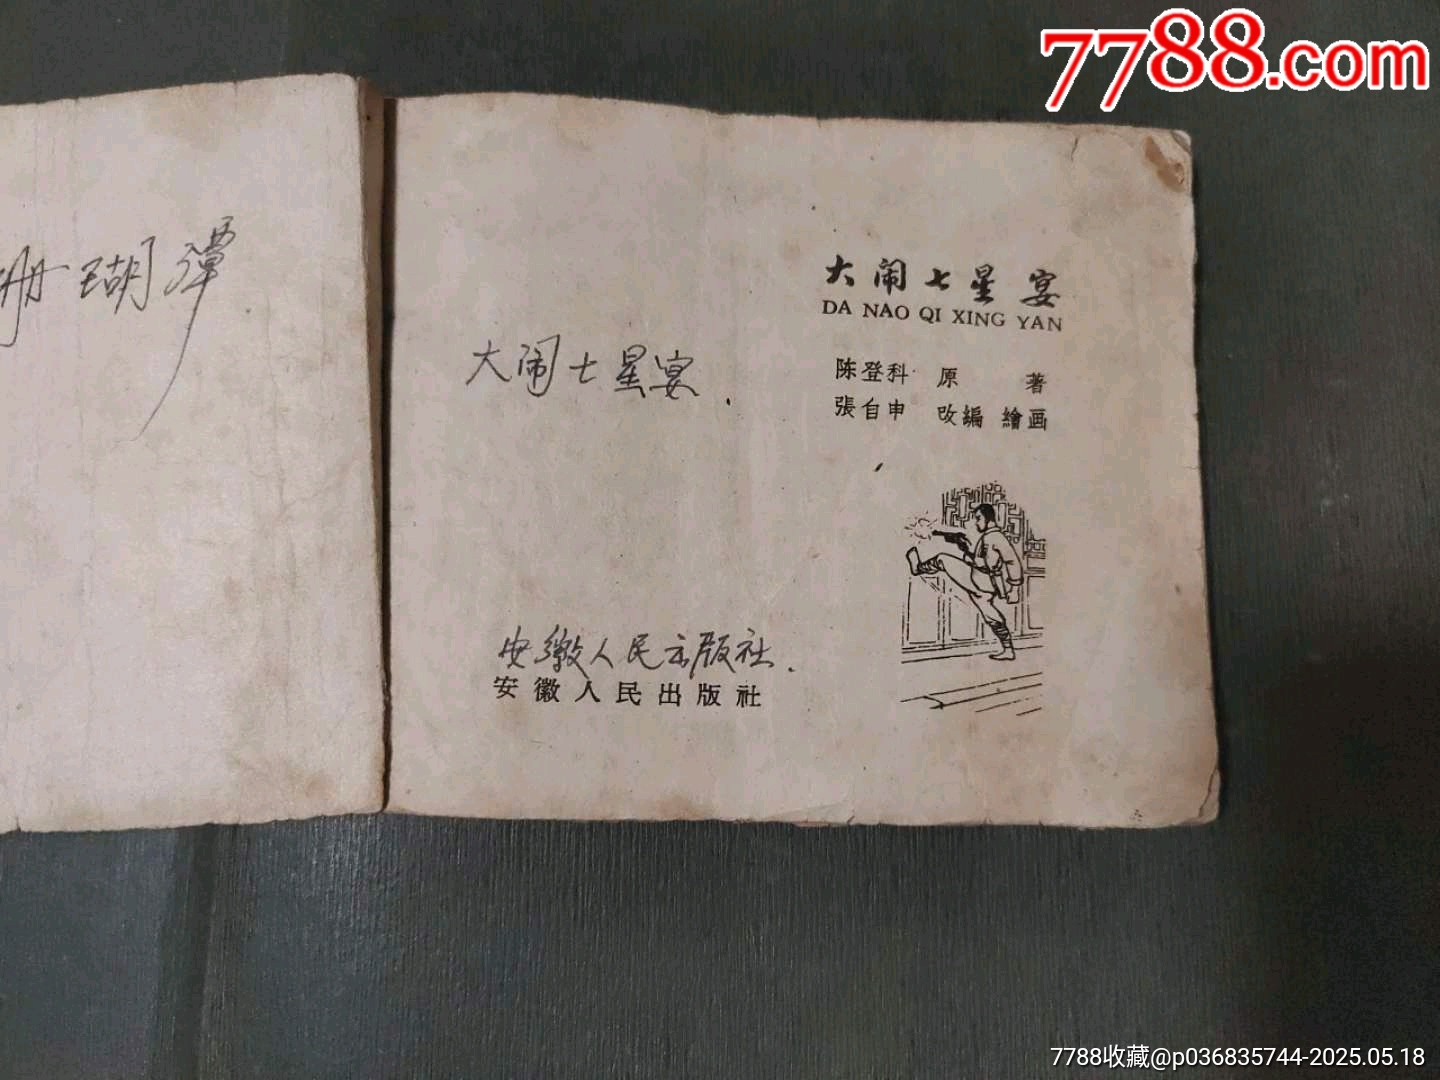 7788.com
珊瑚潭
大闹七星宴
DA NAO QI XING YAN
陈登科 原 著
張自申 改編 繪画
大闹七星宴.
安徽人民出版社.
安徽人民出版社
7788收藏@p036835744-2025.05.18